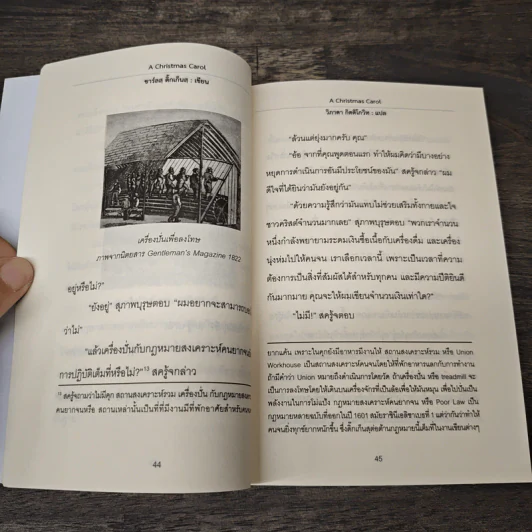 A Christmas Carol
ชาร์ลส ดิ๊กเก็นส : เขียน
เครื่องปั่นเพื่อลงโทษ
ภาพจากนิตยสาร Gentleman's Magazine 1822
อยู่หรือไม่?"
"ยังอยู่" สุภาพบุรุษตอบ "ผมอยากจะสามารถบอก
ว่าไม่"
"แล้วเครื่องปั่นกับกฎหมายสงเคราะห์คนยากจน
การปฏิบัติเต็มที่หรือไม่?"¹³ สครู้จกล่าว
¹³ สครู้จถามว่าไม่มีคุก สถานสงเคราะห์รวม เครื่องปั่น กับกฎหมายสงเคราะห์
คนยากจนหรือ สถานเหล่านั้นเป็นที่ที่มีงานมีที่พักอาศัยสำหรับคน
44
A Christmas Carol
วิภาดา กิตติโกวิท : แปล
"ล้วนแต่ยุ่งมากครับ คุณ"
"อ้อ จากที่คุณพูดตอนแรก ทำให้ผมคิดว่ามีบางอย่าง
หยุดการดำเนินการอันมีประโยชน์ของมัน" สครู้จกล่าว "ผม
ดีใจที่ได้ยินว่ามันยังอยู่กัน"
"ด้วยความรู้สึกว่ามันแทบไม่ช่วยเสริมทั้งกายและใจ
ชาวคริสต์จำนวนมากเลย" สุภาพบุรุษตอบ "พวกเราจำนวน
หนึ่งกำลังพยายามระดมเงินซื้อเนื้อกับเครื่องดื่ม และเครื่อง
นุ่งห่มไปให้คนจน เราเลือกเวลานี้ เพราะเป็นเวลาที่ความ
ต้องการเป็นสิ่งที่สัมผัสได้สำหรับทุกคน และมีความปีติยินดี
กันมากมาย คุณจะให้ผมเขียนจำนวนเงินเท่าใด?"
"ไม่มี!" สครู้จตอบ
ยากแค้น เพราะในคุกยังมีอาหารมีงานให้ สถานสงเคราะห์รวม หรือ Union
Workhouse เป็นสถานสงเคราะห์คนจนโดยให้ที่พักอาหารแลกกับการทำงาน
ถ้ามีคำว่า Union หมายถึงดำเนินการโดยวัด ถ้าเครื่องปั่น หรือ treadmill จะ
เป็นการลงโทษโดยให้เดินบนเครื่องจักรที่เป็นล้อเพื่อให้มันหมุน เพื่อไปปั่นเป็น
พลังงานในการโม่แป้ง กฎหมายสงเคราะห์คนยากจน หรือ Poor Law เป็น
กฎหมายหลายฉบับที่ออกในปี 1601 สมัยราชินีเอลิซาเบธที่ 1 แต่ว่ากันว่าทำให้
คนจนยิ่งทุกข์ยากหนักขึ้น ซึ่งดิ๊กเก็นสุต่อต้านกฎหมายนี้เต็มที่ในงานเขียนต่างๆ
45